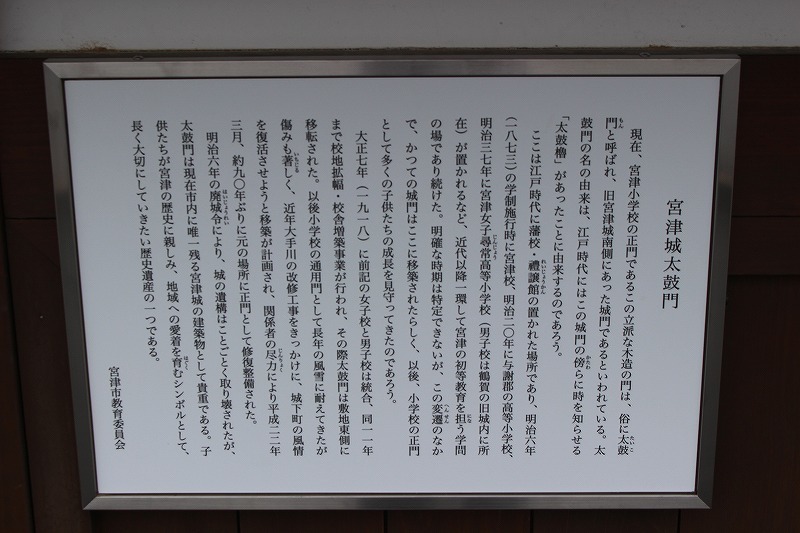 宮津城太鼓門
現在、宮津小学校の正門であるこの立派な木造の門は、俗に太鼓
門と呼ばれ、旧宮津城南側にあった城門であるといわれている。太
鼓門の名の由来は、江戸時代にはこの城門の傍らに時を知らせる
「太鼓櫓」があったことに由来するのであろう。
ここは江戸時代に藩校・禮譲館の置かれた場所であり、明治六年
(一八七三)の学制施行時に宮津校、明治二〇年に与謝郡の高等小学校、
明治三七年に宮津女子尋常高等小学校(男子校は鶴賀の旧城内に所
在)が置かれるなど、近代以降一環して宮津の初等教育を担う学問
の場であり続けた。明確な時期は特定できないが、この変遷のなか
で、かつての城門はここに移築されたらしく、以後、小学校の正門
として多くの子供たちの成長を見守ってきたのであろう。
大正七年(一九一八)に前記の女子校と男子校は統合、同一一年
まで校地拡幅・校舎増築事業が行われ、その際太鼓門は敷地東側に
移転された。以後小学校の通用門として長年の風雪に耐えてきたが
傷みも著しく、近年大手川の改修工事をきっかけに、城下町の風情
を復活させようと移築が計画され、関係者の尽力により平成二二年
三月、約九〇年ぶりに元の場所に正門として修復整備された。
明治六年の廃城令により、城の遺構はことごとく取り壊されたが、
太鼓門は現在市内に唯一残る宮津城の建築物として貴重である。子
供たちが宮津の歴史に親しみ、地域への愛着を育むシンボルとして、
長く大切にしていきたい歴史遺産の一つである。
宮津市教育委員会